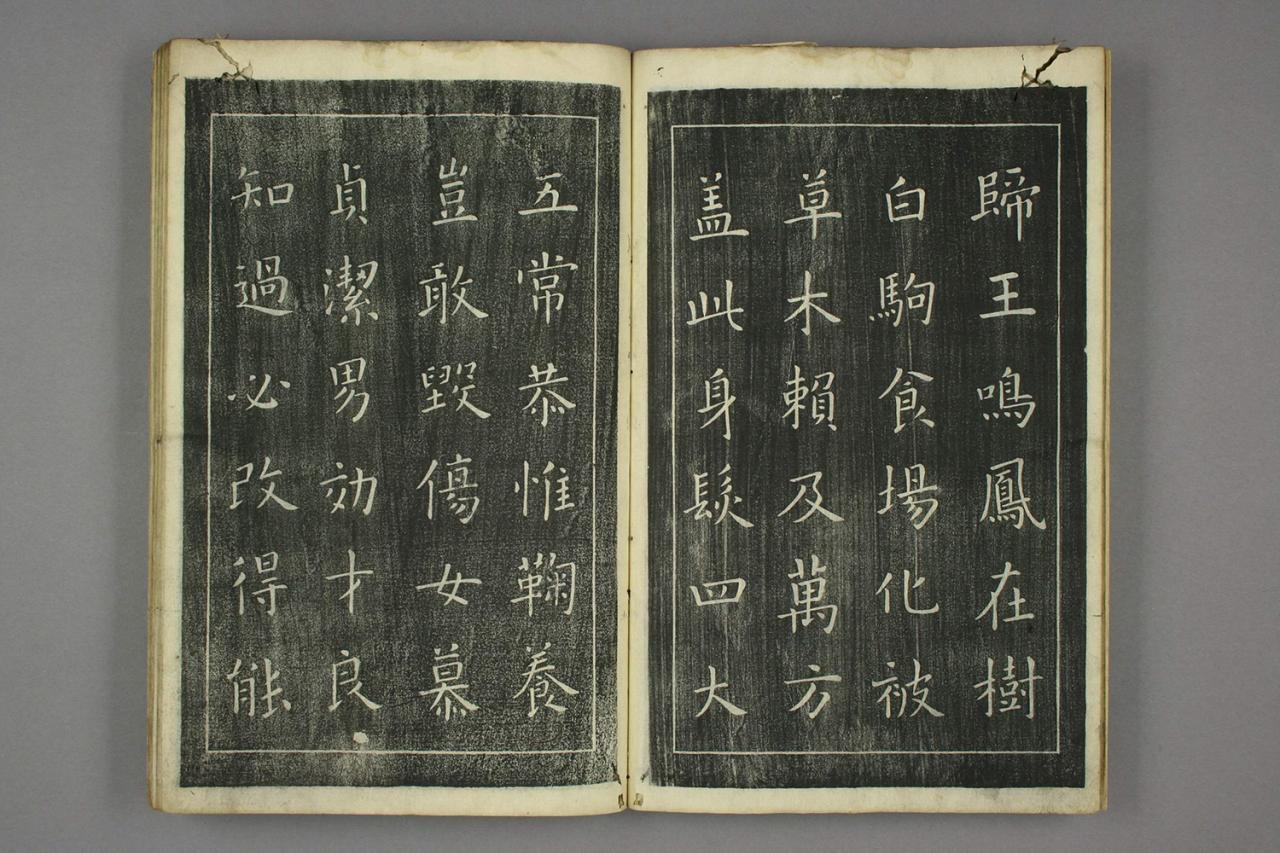 歸王鳴鳳在樹
白駒食場化被
草木賴及萬方
盖此身髮四大
五常恭惟鞠養
豈敢毀傷女慕
貞潔男効才良
知過必改得能